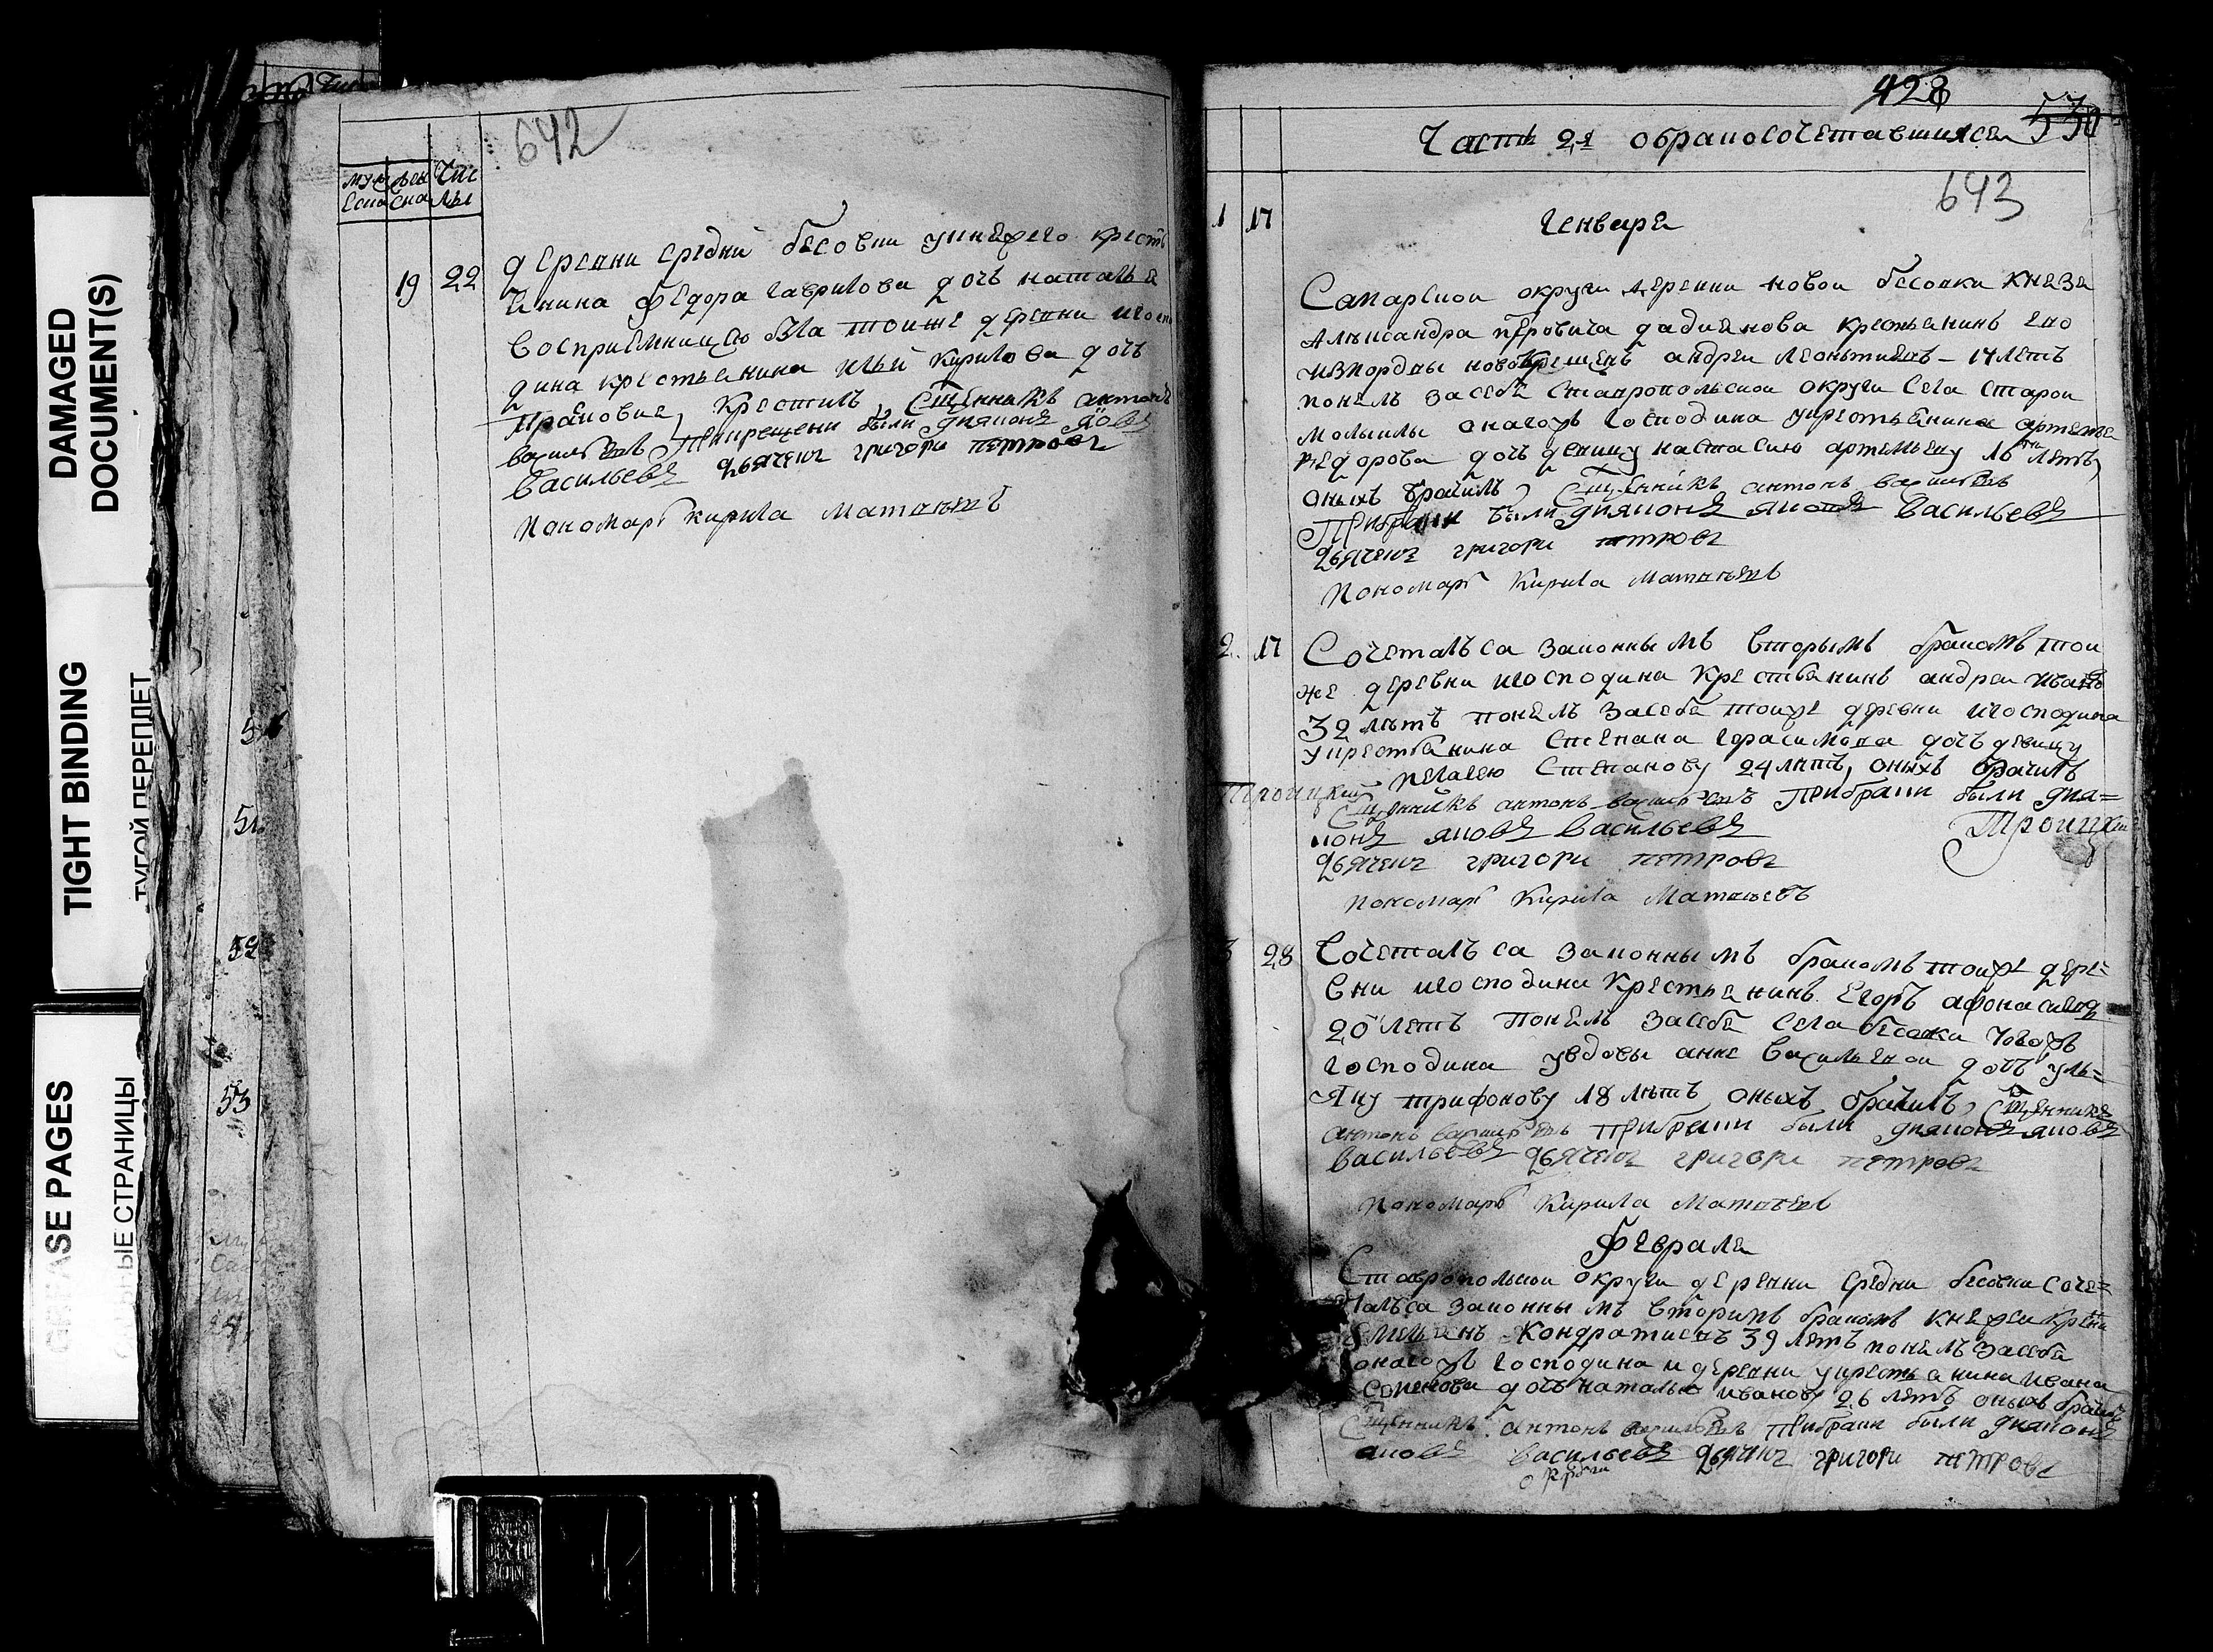 DAMAGED
DOCUMENT(S)
TIGHT BINDING
ТУГОЙ ПЕРЕПЛЕТ
ASE PAGES
ЫЕ СТРАНИЦЫ
51
52
53
642
муж жен Чис
ска ска лы
19 22
деревни средни бесовки унеяжего крестъ
енина федора гаврилова дочъ наталъя
восприемницею была тоижъ деревни
дина крестъенина илъи кирилова дочъ
Крестилъ Сщенникъ антонъ
василъевъ Прикрещени были дияконъ яковъ
Васильевъ дьячекъ григори петровъ
пономаръ кирила Матвѣевъ
428
530
Частъ 2я обракосочетавшихся
643
1 17 Генваря
Самарскои округи деревни новои бесовки князя
Александра петровича дадиянова крестъенинъ ево
измордвы новокрещенъ андреи леонътиевъ 17 летъ
понелъ засебе Ставрополъскои округи села старои
онагожъ господина укрестъенина артемъя
федорова дочъ девицу настасию артемъеву 16 летъ,
оныхъ брачилъ Сщенникъ антонъ василъевъ
Прибраки были дияконъ яковъ Васильевъ
дьячекъ григори петровъ
Пономаръ Кирила Матвѣевъ
2 17 Сочеталъса законнымъ вторымъ бракомъ тои
же деревни игосподина крестъенинъ андреи иванъ
32 лѣтъ понелъ засебя тоиже деревни игосподина
укрестъенина Степана герасимова дочъ девицу
пелагею Степанову 24 лѣтъ, оныхъ брачилъ
Троицкии
Сщенникъ антонъ василъевъ Прибраки были дия=
конъ яковъ Васильевъ
Троицкии
дьячекъ григори петровъ
пономаръ Кирила Матвѣевъ
3 28 Сочеталъса законнымъ бракомъ тоиже дере=
вни игосподина крестъенинъ Егоръ афонасиевъ
20 летъ Понелъ засебе села бесовки тогожъ
господина увдовы анне василъевои дочъ улъ=
яну трифонову 18 лѣтъ оныхъ брачилъ, Сщенникъ
антонъ василъевъ Прибраки были диякона яковъ
Васильевъ дьячекъ григори петровъ
пономаръ Кирила Матвѣевъ
Февраля
Ставрополъскои округи деревни средни бесовки соче=
талъса законнымъ вторымъ бракомъ
Кондратиевъ 39 летъ понелъ засебе
онагожъ господина и деревни укрестъенина ивана
семенова дочъ наталъю иванову 26 летъ оныхъ брачилъ
Сщенникъ антонъ василъевъ Прибраки были диякона
яковъ Васильевъ дьячекъ григори петровъ